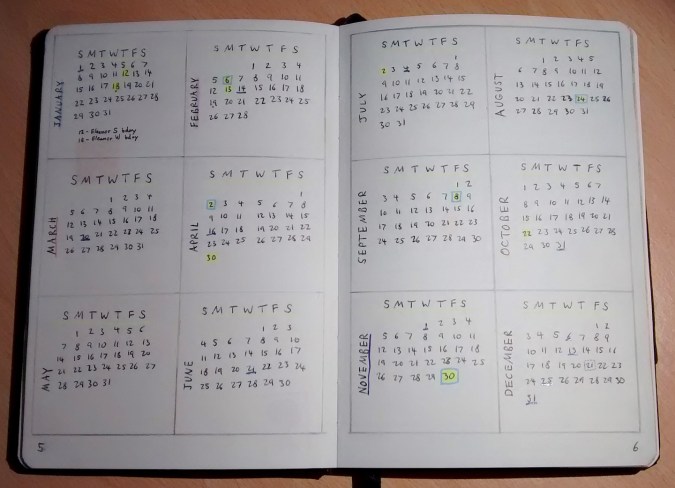 JANUARY
S M T W T F S
1 2 3 4 5 6 7
8 9 10 11 12 13 14
15 16 17 18 19 20 21
22 23 24 25 26 27 28
29 30 31
12 - Eleanor S bday
18 - Eleanor W bday
FEBRUARY
S M T W T F S
1 2 3 4
5 6 7 8 9 10 11
12 13 14 15 16 17 18
19 20 21 22 23 24 25
26 27 28
MARCH
S M T W T F S
1 2 3 4
5 6 7 8 9 10 11
12 13 14 15 16 17 18
19 20 21 22 23 24 25
26 27 28 29 30 31
APRIL
S M T W T F S
1
2 3 4 5 6 7 8
9 10 11 12 13 14 15
16 17 18 19 20 21 22
23 24 25 26 27 28 29
30
MAY
S M T W T F S
1 2 3 4 5 6
7 8 9 10 11 12 13
14 15 16 17 18 19 20
21 22 23 24 25 26 27
28 29 30 31
JUNE
S M T W T F S
1 2 3
4 5 6 7 8 9 10
11 12 13 14 15 16 17
18 19 20 21 22 23 24
25 26 27 28 29 30
5
JULY
S M T W T F S
1
2 3 4 5 6 7 8
9 10 11 12 13 14 15
16 17 18 19 20 21 22
23 24 25 26 27 28 29
30 31
AUGUST
S M T W T F S
1 2 3 4 5
6 7 8 9 10 11 12
13 14 15 16 17 18 19
20 21 22 23 24 25 26
SEPTEMBER
S M T W T F S
1 2
3 4 5 6 7 8 9
10 11 12 13 14 15 16
17 18 19 20 21 22 23
24 25 26 27 28 29 30
OCTOBER
S M T W T F S
1 2 3 4 5 6 7
8 9 10 11 12 13 14
15 16 17 18 19 20 21
22 23 24 25 26 27 28
29 30 31
NOVEMBER
S M T W T F S
1 2 3 4
5 6 7 8 9 10 11
12 13 14 15 16 17 18
19 20 21 22 23 24 25
26 27 28 29 30
DECEMBER
S M T W T F S
1 2
3 4 5 6 7 8 9
10 11 12 13 14 15 16
17 18 19 20 21 22 23
24 25 26 27 28 29 30
31
6